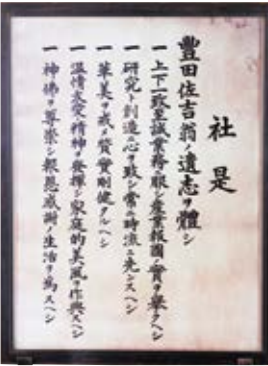 社是
豐田佐吉翁ノ遺志ヲ體シ
一 上下一致至誠業務ニ服シ産業報國ノ實ヲ擧クヘシ
一 研究ト創造ニ心ヲ致シ常ニ時流ニ先ンスヘシ
一 華美ヲ戒メ質實剛健タルヘシ
一 温情友愛ノ精神ヲ發揮シ家庭的美風ヲ作興スヘシ
一 神佛ヲ尊崇シ報恩感謝ノ生活ヲ爲スヘシ